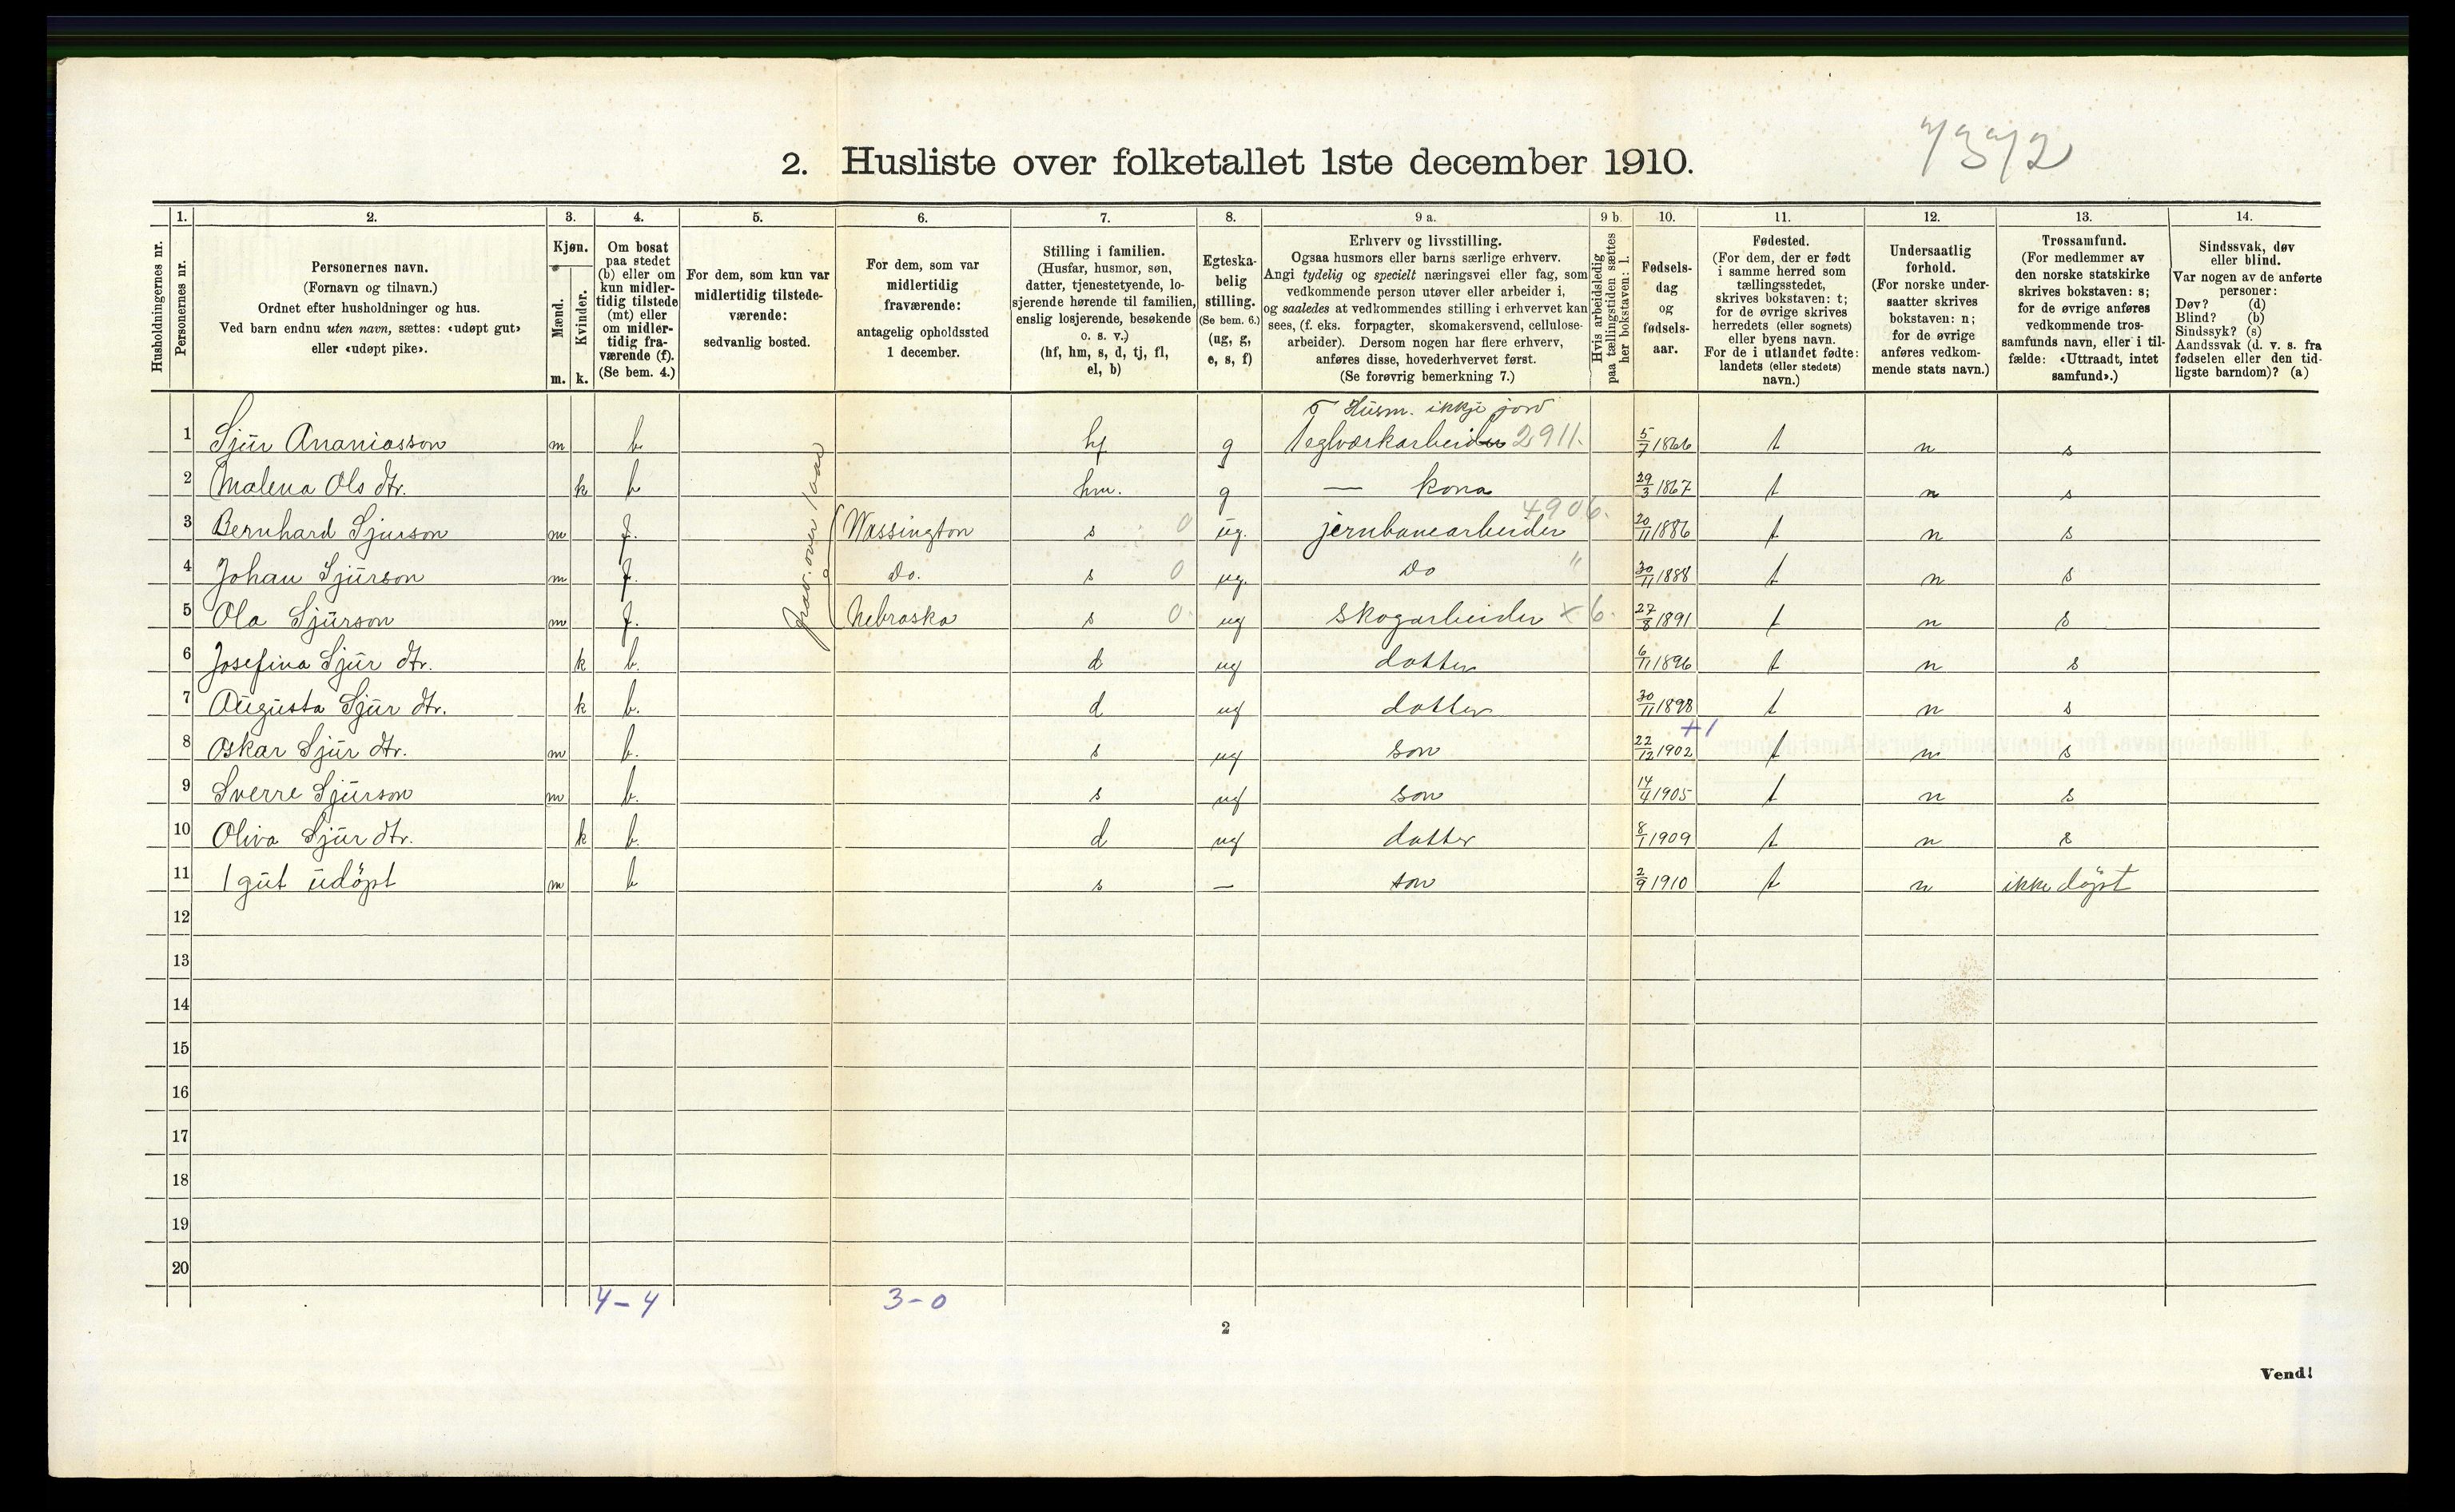 7372
2. Husliste over folketallet 1ste december 1910.
1. 2. 3. 4. 5. 6. 7. 8. 9 a. 9 b. 10. 11. 12. 13. 14.
Husholdningernes nr.
Personernes nr.
Personernes navn.
(Fornavn og tilnavn.)
Ordnet efter husholdninger og hus.
Ved barn endnu uten navn, sættes: «udøpt gut»
eller «udøpt pike».
Kjøn.
Mænd.
Kvinder.
m. k.
Om bosat
paa stedet
(b) eller om
kun midler-
tidig tilstede
(mt) eller
om midler-
tidig fra-
værende (f).
(Se bem. 4.)
For dem, som kun var
midlertidig tilstede-
værende:
sedvanlig bosted.
For dem, som var
midlertidig
fraværende:
antagelig opholdssted
1 december.
Stilling i familien.
(Husfar, husmor, søn,
datter, tjenestetyende, lo-
sjerende hørende til familien,
enslig losjerende, besøkende
o. s. v.)
(hf, hm, s, d, tj, fl,
el, b)
Egteska-
belig
stilling.
(Se bem. 6.)
(ug, g,
e, s, f)
Erhverv og livsstilling.
Ogsaa husmors eller barns særlige erhverv.
Angi tydelig og specielt næringsvei eller fag, som
vedkommende person utøver eller arbeider i,
og saaledes at vedkommendes stilling i erhvervet kan
sees, (f. eks. forpagter, skomakersvend, cellulose-
arbeider). Dersom nogen har flere erhverv,
anføres disse, hovederhvervet først.
(Se forøvrig bemerkning 7.)
Hvis arbeidsledig
paa tællingstiden sættes
her bokstaven: l.
Fødsels-
dag
og
fødsels-
aar.
Fødested.
(For dem, der er født
i samme herred som
tællingsstedet,
skrives bokstaven: t;
for de øvrige skrives
herredets (eller sognets)
eller byens navn.
For de i utlandet fødte:
landets (eller stedets)
navn.)
Undersaatlig
forhold.
(For norske under-
saatter skrives
bokstaven: n;
for de øvrige
anføres vedkom-
mende stats navn.)
Trossamfund.
(For medlemmer av
den norske statskirke
skrives bokstaven: s;
for de øvrige anføres
vedkommende tros-
samfunds navn, eller i til-
fælde: «Uttraadt, intet
samfund».)
Sindssvak, døv
eller blind.
Var nogen av de anførte
personer:
Døv? (d)
Blind? (b)
Sindssyk? (s)
Aandssvak (d. v. s. fra
fødselen eller den tid-
ligste barndom)? (a)
Husm. ikkje jord
1 Sjur Ananiasson m b. hf g Teglværkarbeider 2911. 5/7 1866 t n s
2 Malena Ols dtr. k b hm. g — kona 29/3 1867 t n s
4906.
3 Bernhard Sjurson m f. Wassington s 0 ug. jernbanearbeider 20/11 1886 t n s
4 Johan Sjurson m f. Do. s 0 ug. Do " 30/11 1888 t n s
5 Ola Sjurson m f. Nebraska s 0 ug skogarbeider x 6. 27/8 1891 t n s
frav. over 1 aar
6 Josefina Sjur dtr. k b. d ug datter 6/11 1896 t n s
7 Augusta Sjur dtr. k b. d ug datter 30/11 1898 t n s
+1
8 Oskar Sjur dtr. m b. s ug son 22/12 1902 t n s
9 Sverre Sjurson m b. s ug son 14/4 1905 t n s
10 Oliva Sjur dtr. k b. d ug datter 8/1 1909 t n s
11 1 gut udöpt m b s — son 2/9 1910 t n ikke döpt
12
13
14
15
16
17
18
19
20
4–4 3–0
2
Vend!